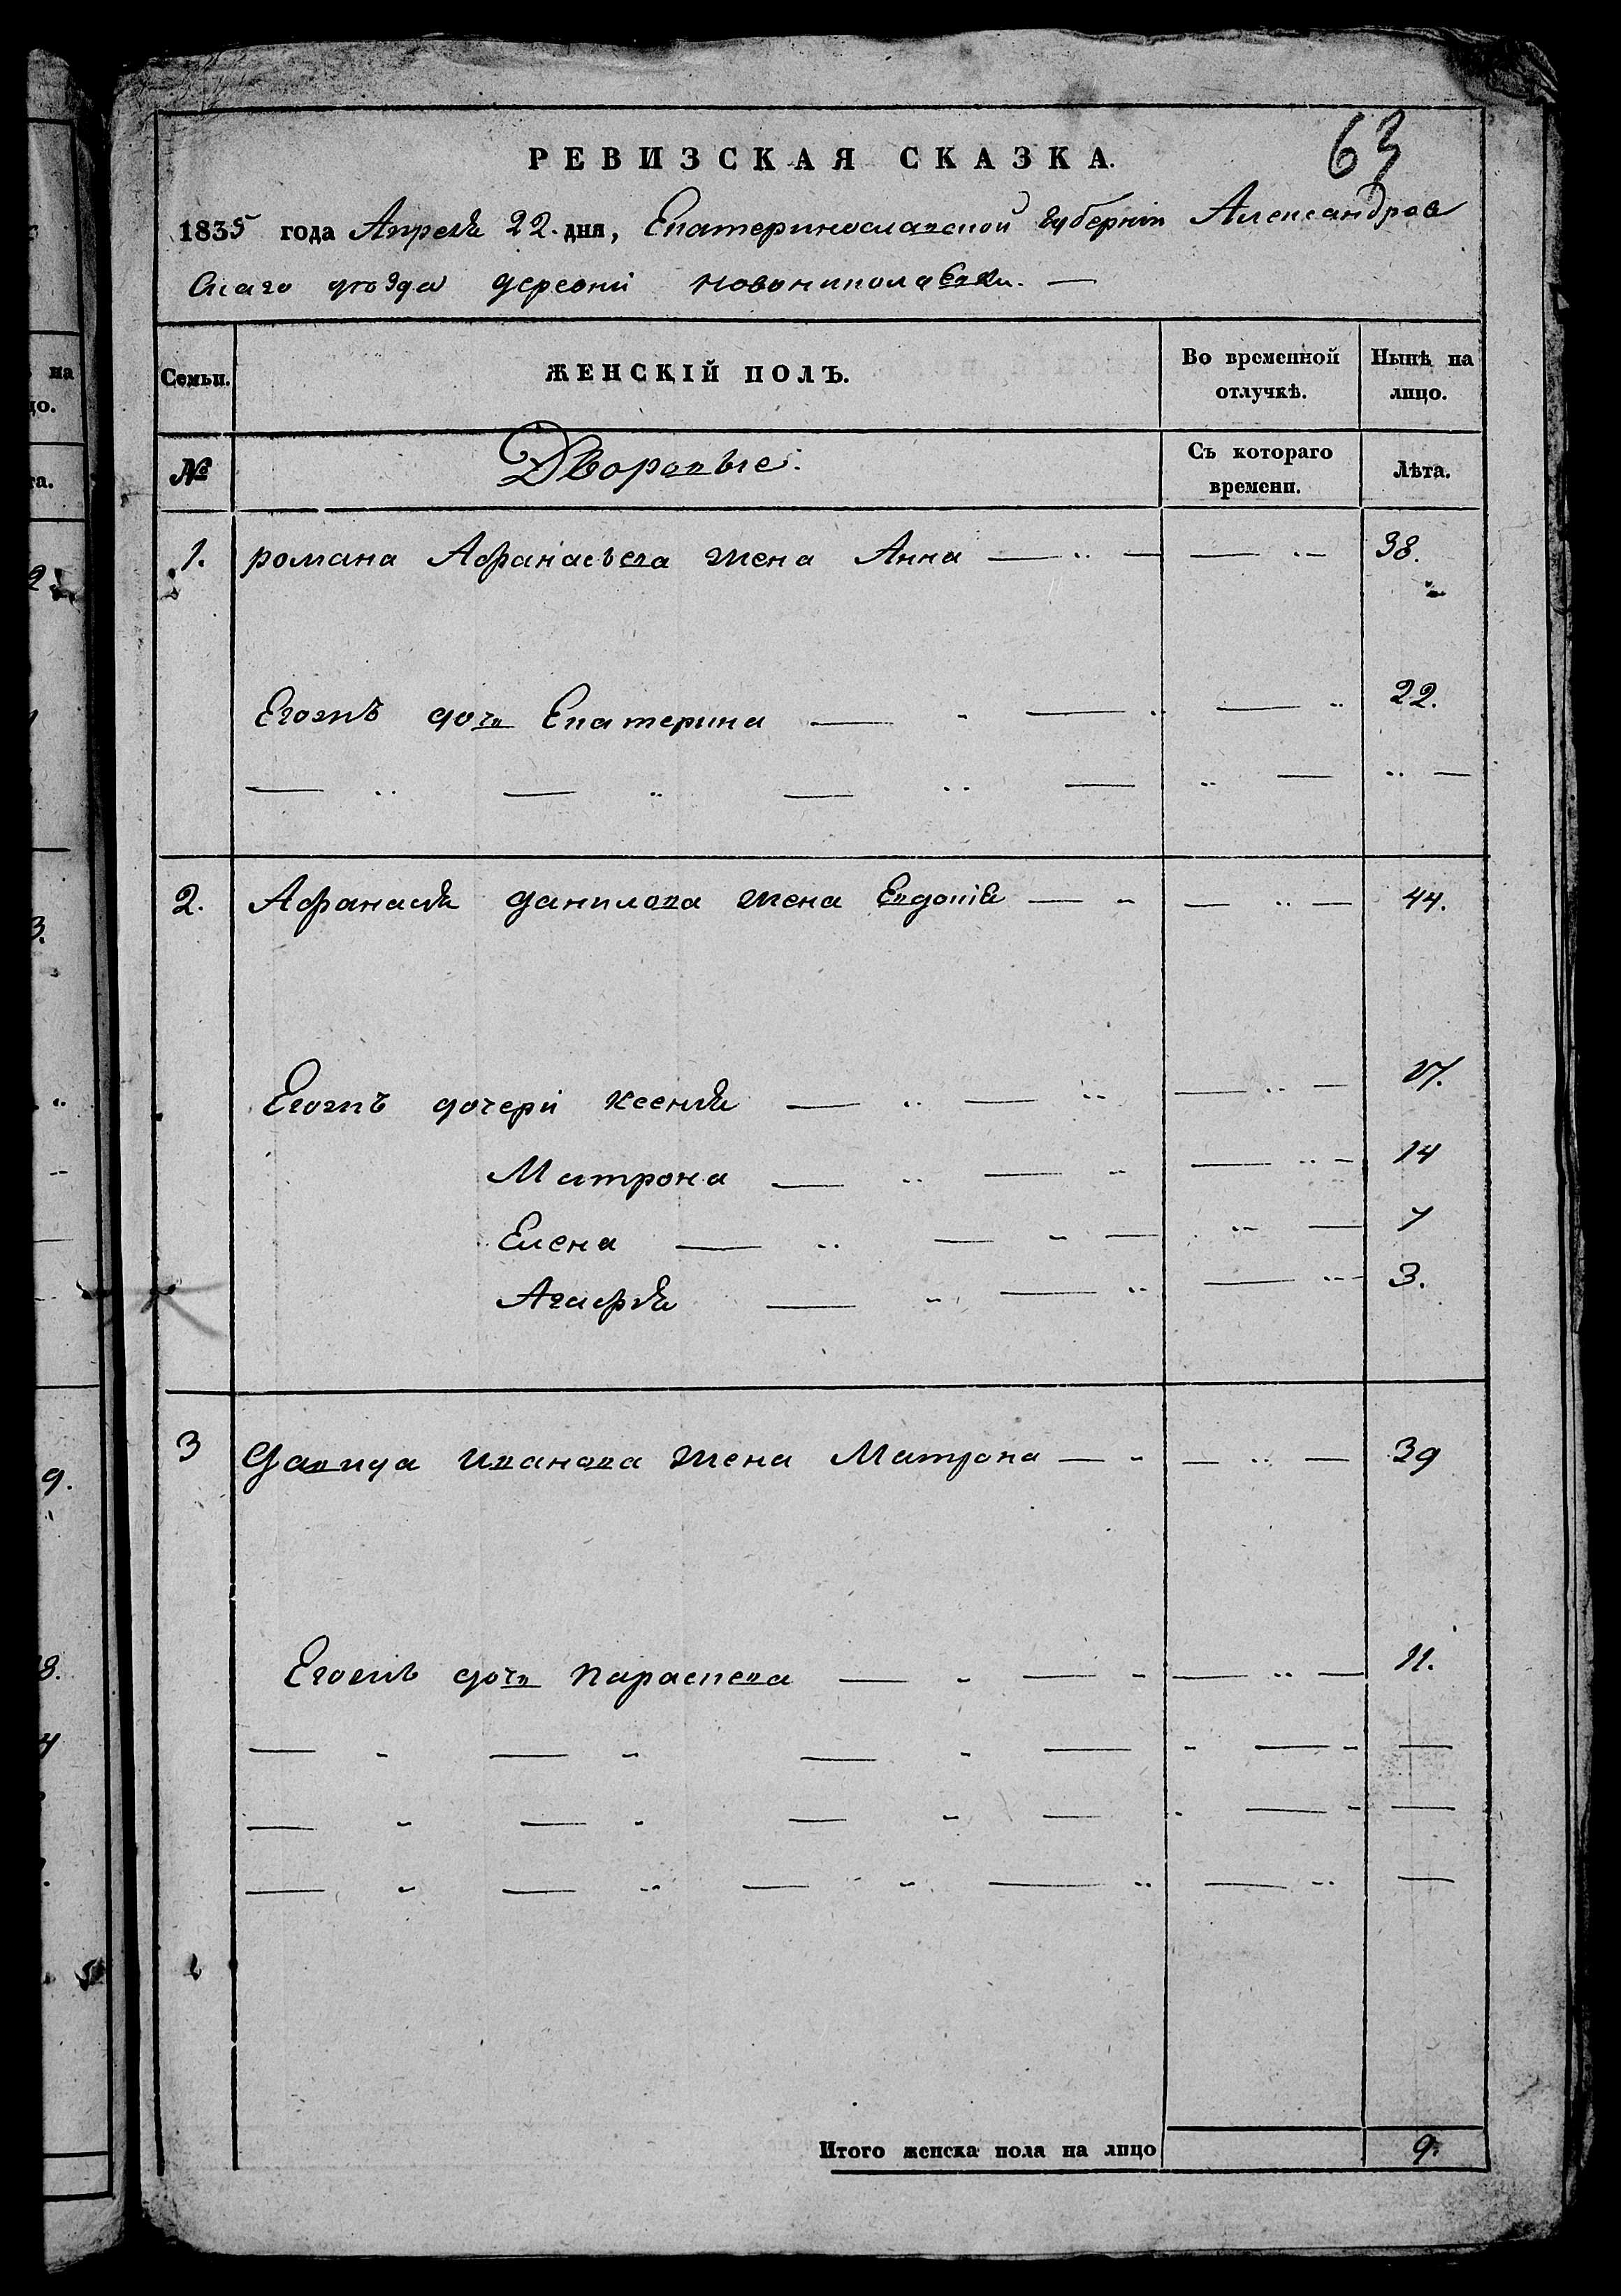 63
РЕВИЗСКАЯ СКАЗКА.
1835 года Апреля 22. дня, Екатеринославской губерніи Александров
скаго уезда деревни Новониколаевки. —
Семьи. ЖЕНСКІЙ ПОЛЪ. Во временной отлучкѣ. Нынѣ на лицо.
№ Дворовые. Съ котораго времени. Лѣта.
1. романа Афанасьева жена Анна 38.
Егожъ дочь Екатерина 22.
2. Афанасия данилова жена Евдокия 44.
Егожъ дочери Ксения 17.
Матрона 14
Елена 7
Агафия 3.
3 Давида Иванова жена Матрона 39
Егожъ дочь Параскева 11.
Итого женска пола на лицо 9.